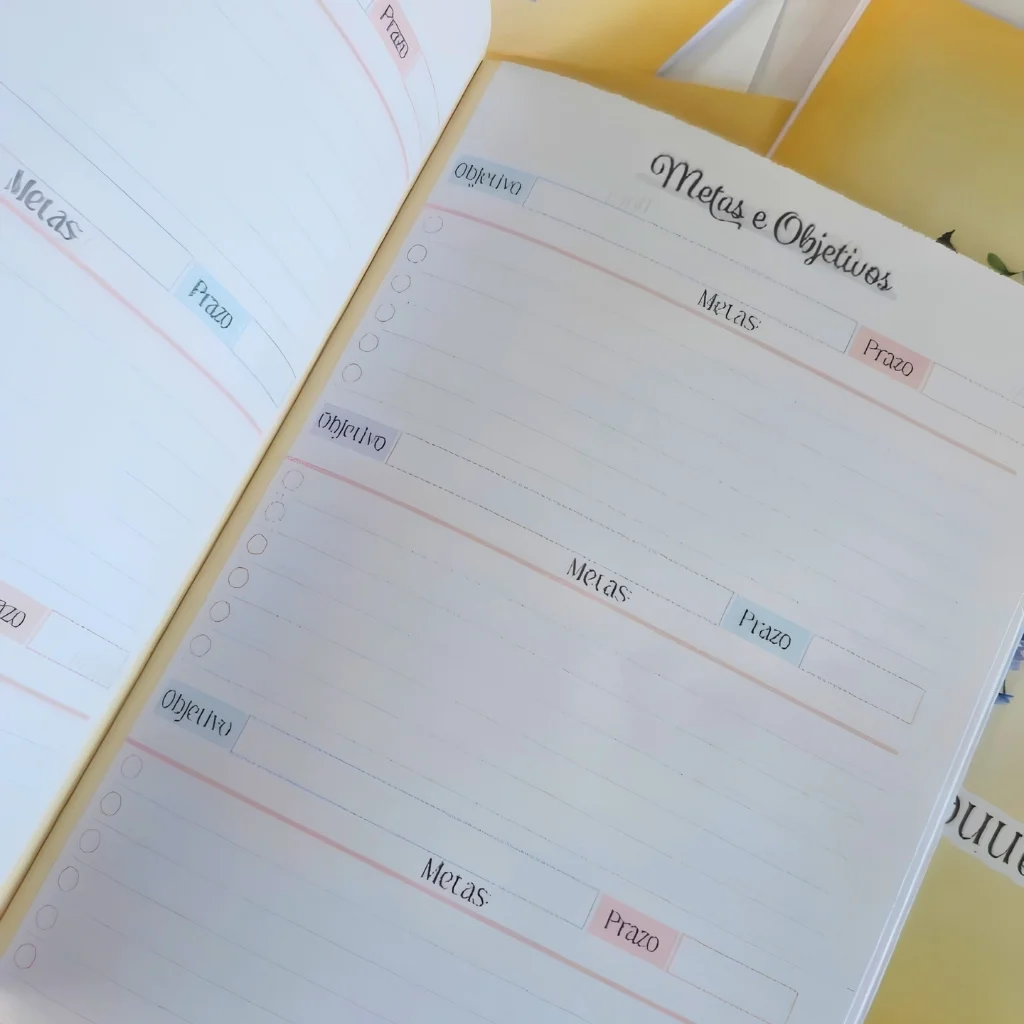 Prazo
Metas
Prazo
Metas e Objetivos
Objetivo
Metas:
Prazo
Objetivo
Metas:
Prazo
Objetivo
Metas:
Prazo